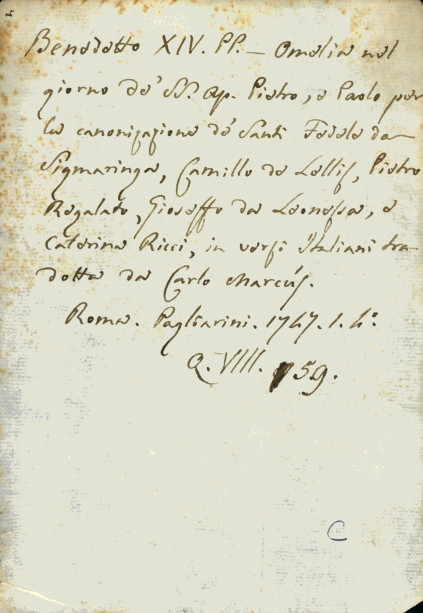 Benedetto XIV. PP. — Omelia nel
giorno de' SS. Ap. Pietro, e Paolo per
la canonizazione de' Santi Fedele da
Sigmaringa, Camillo de Lellis, Pietro
Regalato, Gioseffo da Leonessa, e
Caterina Ricci, in versi Italiani tra-
dotta da Carlo Marcús.
Roma. Pagliarini. 1747. 1. 4°.
Q. VIII. 59.
C